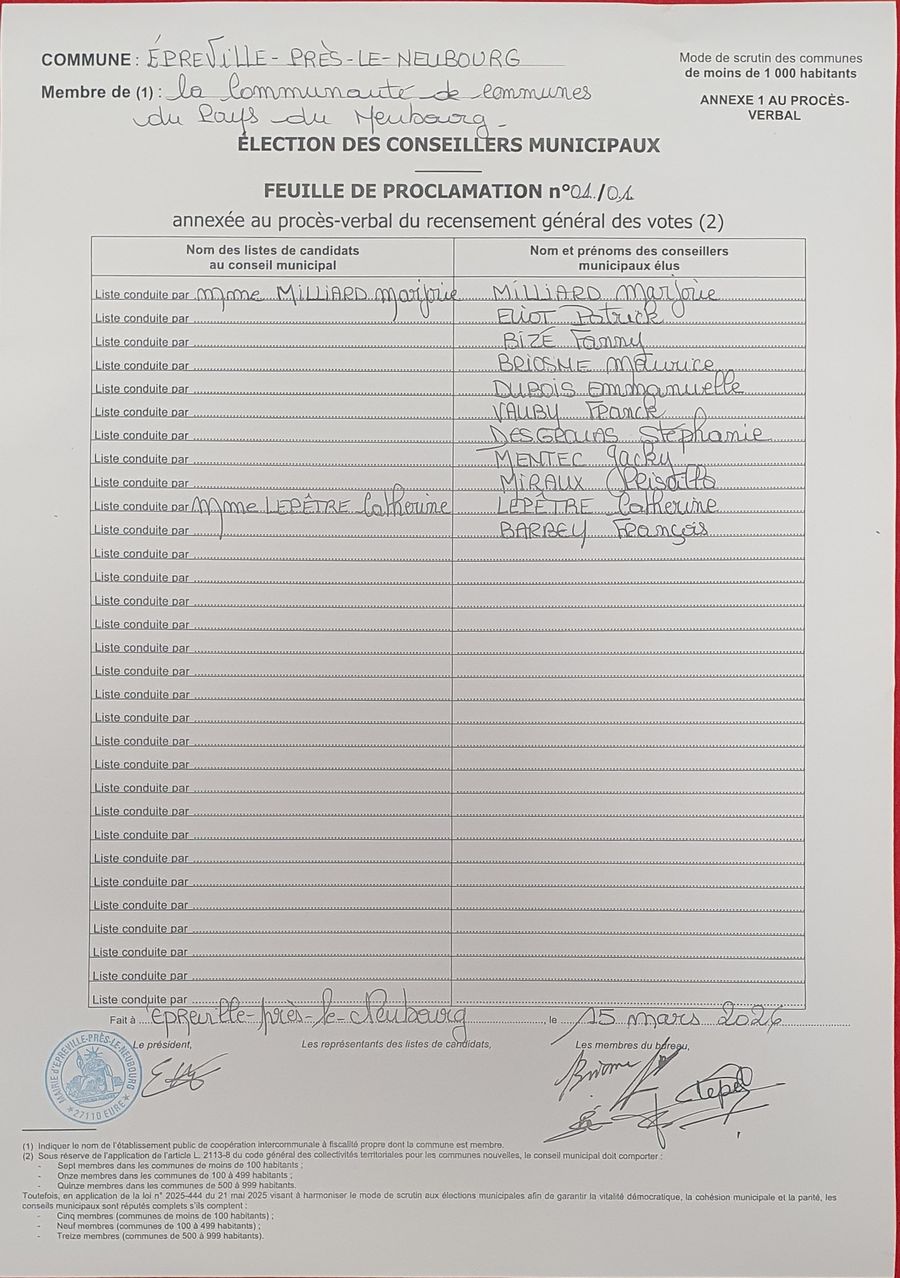 COMMUNE : ÉPREVILLE-PRÈS-LE-NEUBOURG
Mode de scrutin des communes
de moins de 1 000 habitants
Membre de (1) : la Communauté de communes
du Pays du Neubourg.
ANNEXE 1 AU PROCÈS-
VERBAL
ÉLECTION DES CONSEILLERS MUNICIPAUX
FEUILLE DE PROCLAMATION n°01/01
annexée au procès-verbal du recensement général des votes (2)
Nom des listes de candidats
au conseil municipal
Nom et prénoms des conseillers
municipaux élus
Liste conduite par Mme MILLIARD Marjorie MILLIARD Marjorie
Liste conduite par ELIOT Patrick
Liste conduite par BIZÉ Fanny
Liste conduite par BRIOSNE Maurice
Liste conduite par DUBOIS Emmanuelle
Liste conduite par VAUBY Franck
Liste conduite par Stéphanie
Liste conduite par MENTEC Jacky
Liste conduite par MIRAUX
Liste conduite par Mme LEPÊTRE Catherine LEPÊTRE Catherine
Liste conduite par BARBEY François
Liste conduite par
Liste conduite par
Liste conduite par
Liste conduite par
Liste conduite par
Liste conduite par
Liste conduite par
Liste conduite par
Liste conduite par
Liste conduite par
Liste conduite par
Liste conduite par
Liste conduite par
Liste conduite par
Liste conduite par
Liste conduite par
Liste conduite par
Liste conduite par
Liste conduite par
Liste conduite par
Fait à Épreville-près-le-Neubourg, le 15 mars 2026
Le président,
Les représentants des listes de candidats,
Les membres du bureau,
MAIRIE d'ÉPREVILLE-PRÈS-LE-NEUBOURG
27110 EURE
(1) Indiquer le nom de l'établissement public de coopération intercommunale à fiscalité propre dont la commune est membre.
(2) Sous réserve de l'application de l'article L. 2113-8 du code général des collectivités territoriales pour les communes nouvelles, le conseil municipal doit comporter :
- Sept membres dans les communes de moins de 100 habitants ;
- Onze membres dans les communes de 100 à 499 habitants ;
- Quinze membres dans les communes de 500 à 999 habitants.
Toutefois, en application de la loi n° 2025-444 du 21 mai 2025 visant à harmoniser le mode de scrutin aux élections municipales afin de garantir la vitalité démocratique, la cohésion municipale et la parité, les
conseils municipaux sont réputés complets s'ils comptent :
- Cinq membres (communes de moins de 100 habitants) ;
- Neuf membres (communes de 100 à 499 habitants) ;
- Treize membres (communes de 500 à 999 habitants).